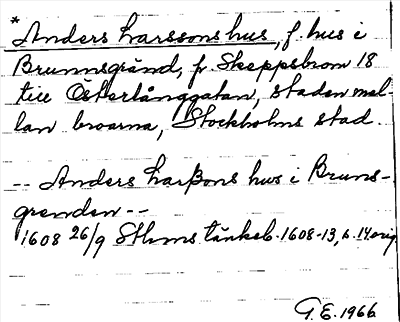 * Anders Larssons hus, f. hus i
Brunnsgränd, fr. Skeppsbron 18
till Österlånggatan, staden mel-
lan broarna, Stockholms stad.
-- Anders Larßons hus i Bruns-
grenden --
1608 26/9 Sthms tänkeb. 1608-13, s. 14 orig.
G.E. 1966